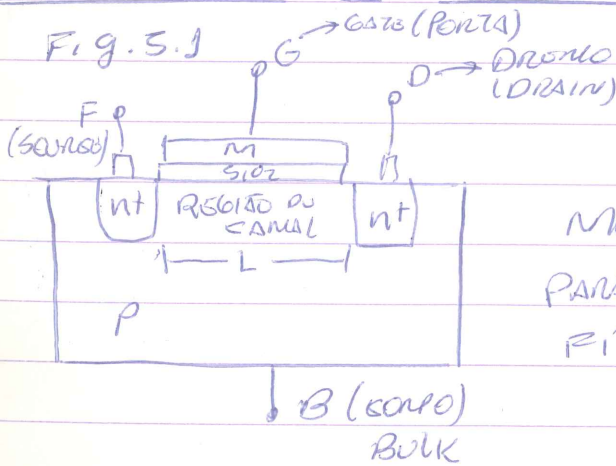 Fig. 5.1
G → GATE (PORTA)
D → DRENO
(DRAIN)
F
(SOURCE)
M
SiO2
n+
REGIÃO DO
CANAL
n+
L
P
B (CORPO)
BULK